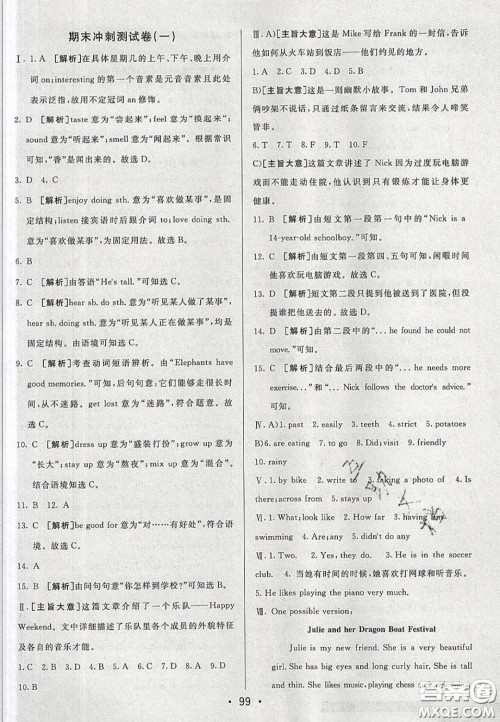 期末冲刺测试卷(一)
Ⅰ. 1. A [解析]在具体星期几的上午、下午、晚上用介
词 on;interesting 的第一个音素是元音音素且此处
表示泛指,故用不定冠词 an 修饰。
2. D [解析]taste 意为“尝起来”;feel 意为“摸起来”;
sound 意为“听起来”;smell 意为“闻起来”。根据常
识可知,“香”是闻出来的。故选 D。
3. D 4. C
5. B [解析]enjoy doing sth. 意为“喜欢做某事”,是
固定结构;listen 接宾语时后跟介词 to;love doing sth.
意为“喜欢做某事”,为固定用法。故选 B。
6. B
7. C [解析]由答语“He's tall.”可知选 C。
8. C [解析]hear sb. do sth. 意为“听见某人做了某事”,
hear sb. doing sth. 意为“听见某人正在做某事”,均
为固定结构。由语境可知选 C。
9. C [解析]考查动词短语辨析。由“Elephants have
good memories.”可知,它们能记住所有的事情,
从不迷路。get lost 意为“迷路”,符合题意。故
选 C。
10. C [解析]dress up 意为“盛装打扮”;grow up 意
为“长大”;stay up 意为“熬夜”;mix up 意为“混合”。
结合语境可知选 C。
11. B 12. A
13. C [解析]be good for 意为“对……有好处”,符合语
境。故选 C。
14. A
15. B [解析]由问句句意“你怎样到学校?”可知选 B。
Ⅱ. [主旨大意]这篇文章介绍了一个乐队——Happy
Weekend。文中详细描写了乐队里各个成员的外貌特征
及各自的音乐才能。
1. C 2. D 3. B 4. D 5. B 6. A 7. C 8. A 9. D
10. B
Ⅲ. A)[主旨大意]这是 Mike 写给 Frank 的一封信,告诉
他们如何从火车站到饭店——他们要吃饭的地方。
1. A 2. D 3. A 4. B 5. D
B)[主旨大意]这是一则幽默小故事。Tom 和 John 兄弟
俩吵架不说话,通过纸条留言来交流,结果令人啼笑
皆非。
6. F 7. T 8. F 9. T 10. F
C)[主旨大意]这篇文章讲述了 Nick 因为过度玩电脑游
戏而不能走动住院,他认识到只有锻炼才能让身体更
健康。
11. B [解析]由短文第一段第一句中的“Nick is a
14-year-old schoolboy.”可知。
12. C [解析]由短文第一段的第四、五句可知,闲暇时间
他喜欢玩电脑游戏。故选 C。
13. A [解析]由短文第二段只可知他被送到了医院,但
没提及谁送的。故选 A。
14. D [解析]由第二段中的“...he found he could not
move.”可知。
15. D [解析]结合最后两段中的“...he needs more
exercise...”和“Nick follows the doctor's advice.”
可知。
Ⅳ. A) 1. past 2. easily 3. teeth 4. street 5. potatoes
B) 6. are eating 7. are 8. to do 9. Did;visit 9. friendly
10. rainy
Ⅴ. 1. by bike 2. write to 3. taking a photo of 4. Is
there;across from 5. stays up
Ⅵ. 1. What;look like 2. How far 3. having any
swimming 4. Are;doing 5. didn't do any
Ⅶ. 1. Two. 2. Yes. 3. Because he likes soccer
best. 4. 当她有时间的时候,她喜欢打网球和听音乐。
5. He likes playing the piano very much.
Ⅷ. One possible version:
Julie and her Dragon Boat Festival
Julie is my new friend. She is a very beautiful
girl. She has long straight hair and big eyes. She is very
99
答案圈
MXQE.COM